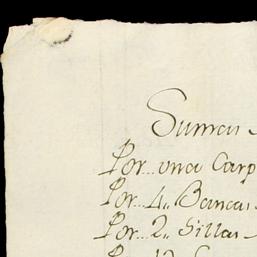 Sumas
Por... una Carp
Por... 4,, Bancas
Por... 2,, Sillas
Por